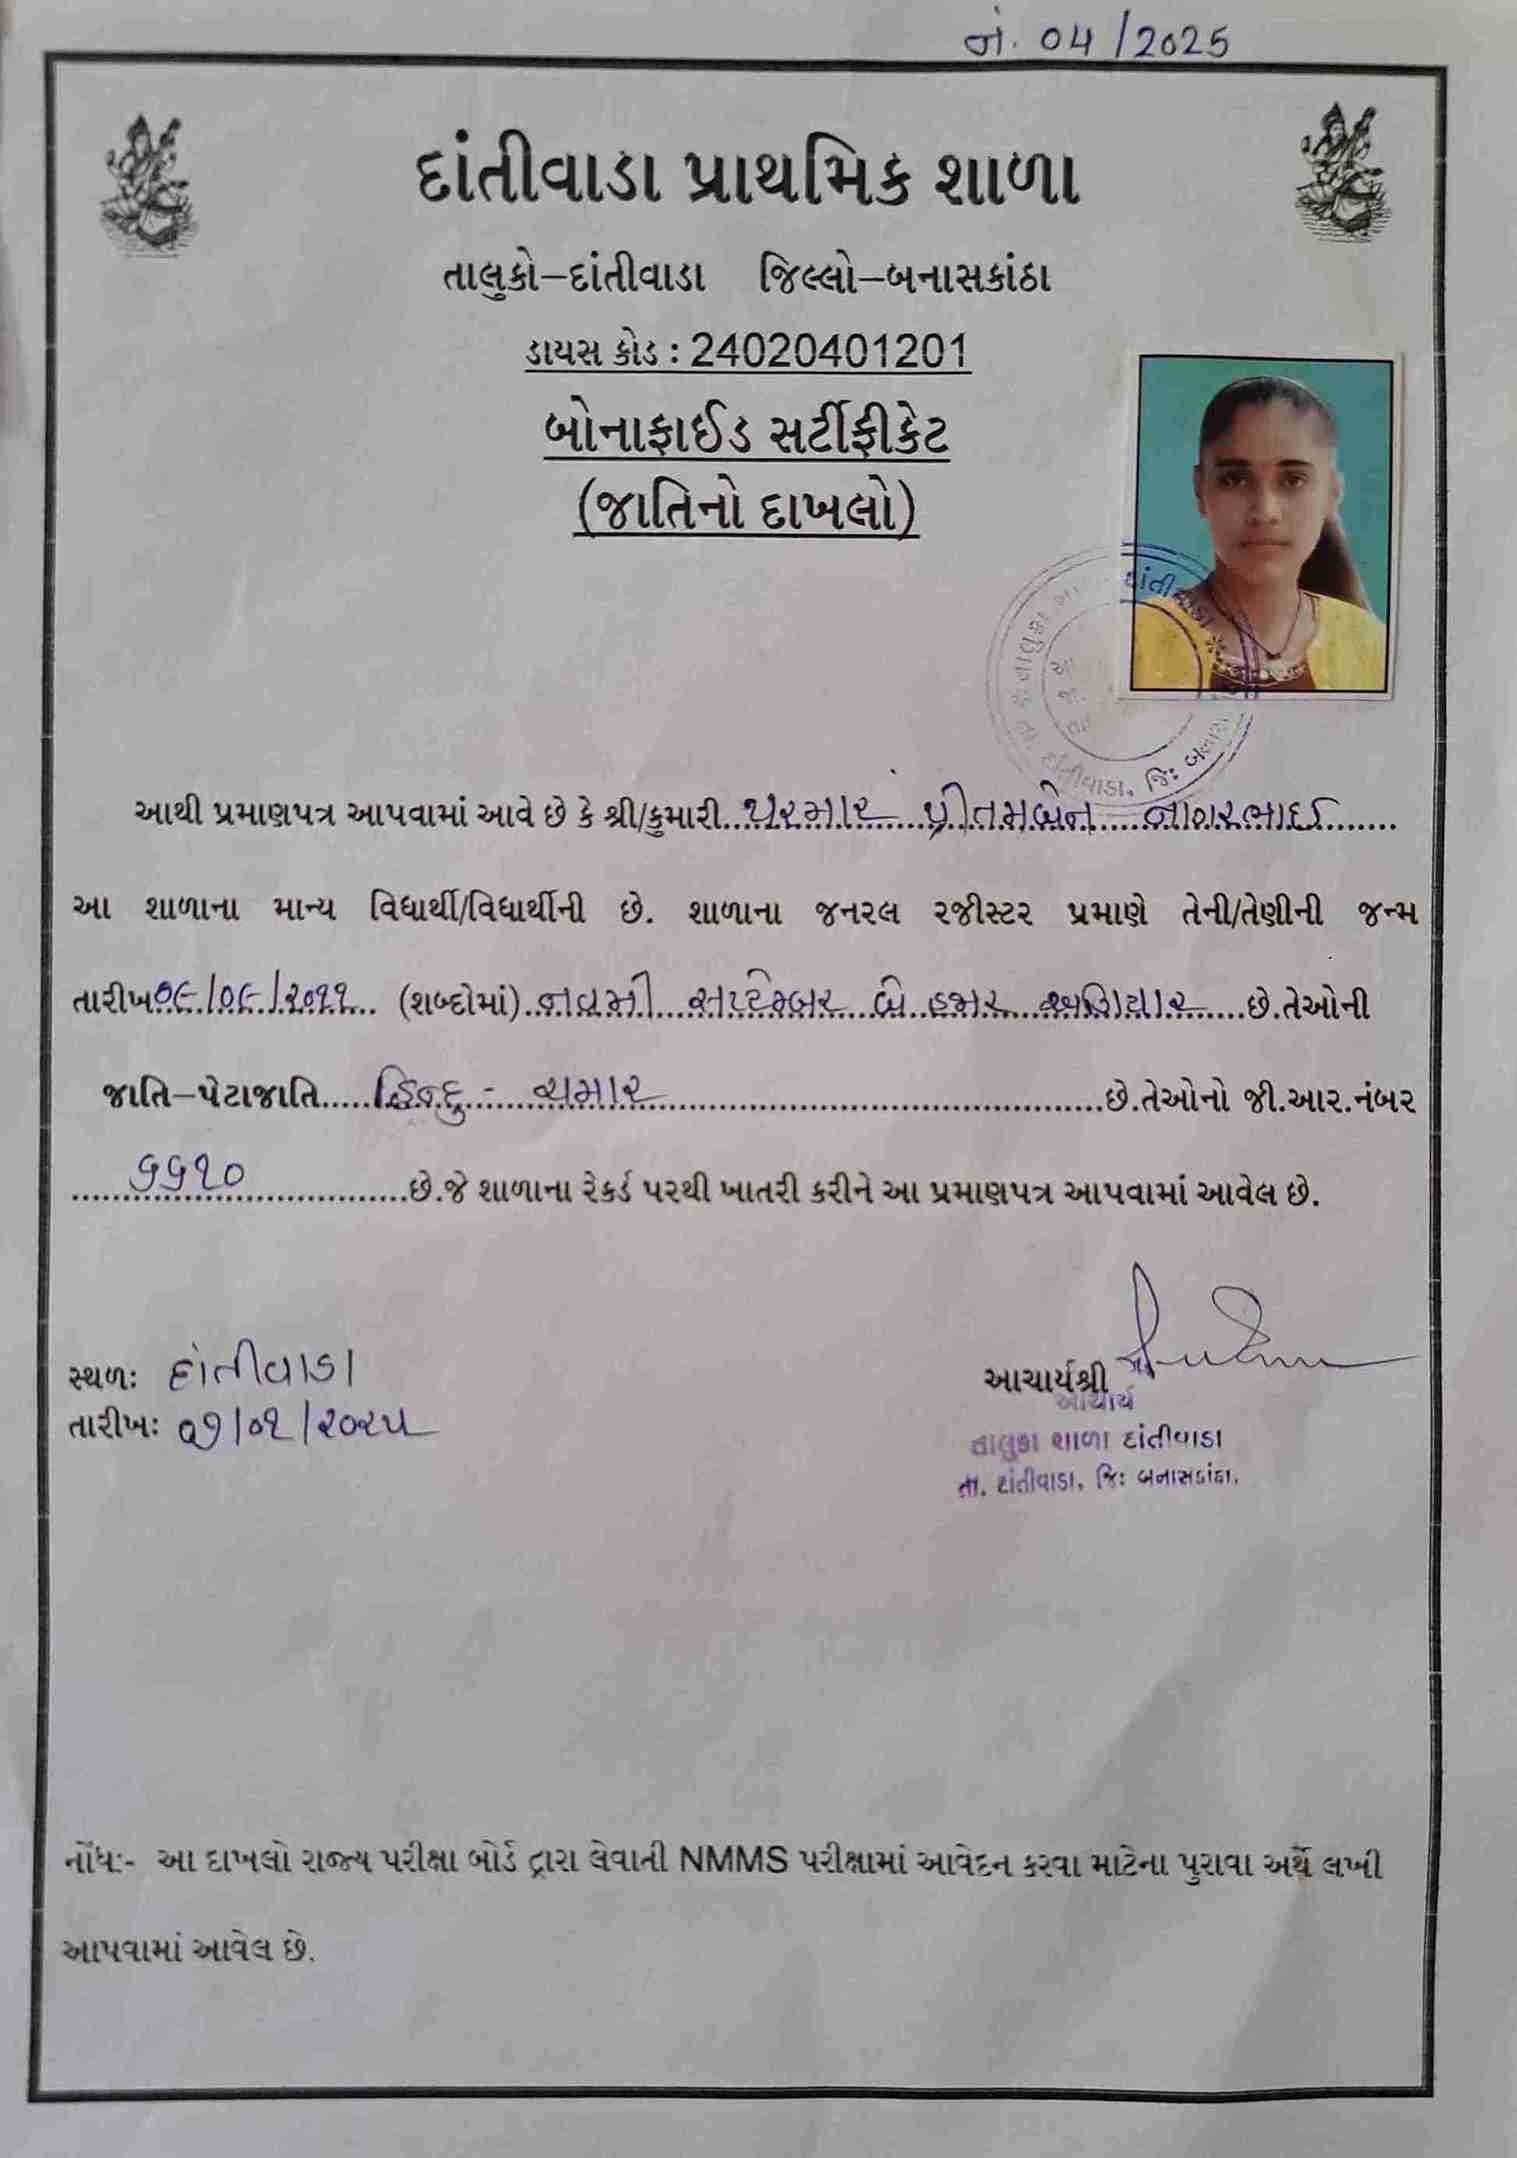 નં. 04/2025
દાંતીવાડા પ્રાથમિક શાળા
તાલુકો-દાંતીવાડા જિલ્લો-બનાસકાંઠા
ડાયસ કોડ : 24020401201
બોનાફાઈડ સર્ટીફીકેટ
(જાતિનો દાખલો)
આથી પ્રમાણપત્ર આપવામાં આવે છે કે શ્રી/કુમારી પરમાર પ્રીતમબેન નાગરભાઈ
આ શાળાના માન્ય વિધાર્થી/વિધાર્થીની છે. શાળાના જનરલ રજીસ્ટર પ્રમાણે તેની/તેણીની જન્મ
તારીખ ૦૯/૦૯/૨૦૧૧ (શબ્દોમાં) નવમી સપ્ટેમ્બર બે હજાર અગિયાર છે.તેઓની
જાતિ-પેટાજાતિ હિન્દુ - ચમાર છે.તેઓનો જી.આર.નંબર
૬૬૧૦ છે.જે શાળાના રેકર્ડ પરથી ખાતરી કરીને આ પ્રમાણપત્ર આપવામાં આવેલ છે.
સ્થળ: દાંતીવાડા
તારીખ: ૦૭/૦૧/૨૦૨૫
આચાર્યશ્રી
આચાર્ય
તાલુકા શાળા દાંતીવાડા
તા. દાંતીવાડા, જિ: બનાસકાંઠા.
નોંધ:- આ દાખલો રાજ્ય પરીક્ષા બોર્ડ દ્વારા લેવાતી NMMS પરીક્ષામાં આવેદન કરવા માટેના પુરાવા અર્થે લખી
આપવામાં આવેલ છે.